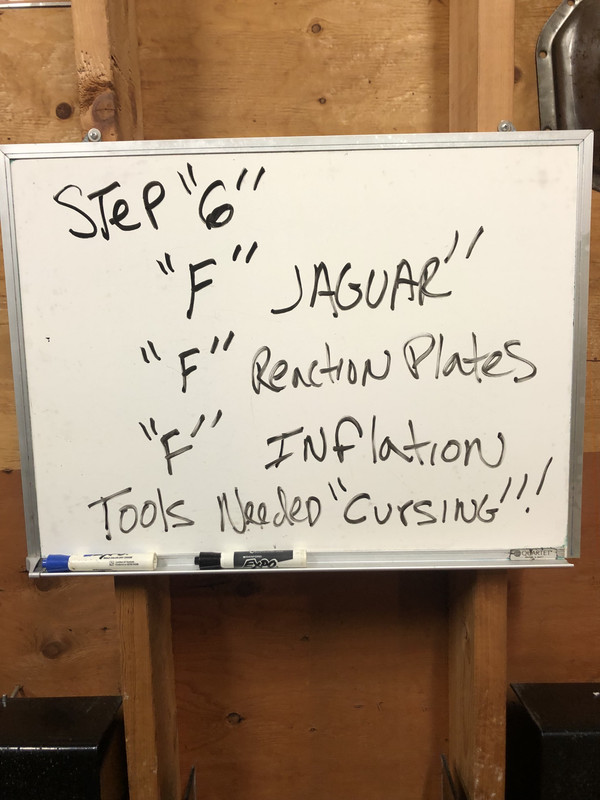 STeP "6"
"F" JAGUAR"
"F" ReactioN Plates
"F" INflation
Tools Needed "CURSING"!!
EXPO
EXPO
QUARTET